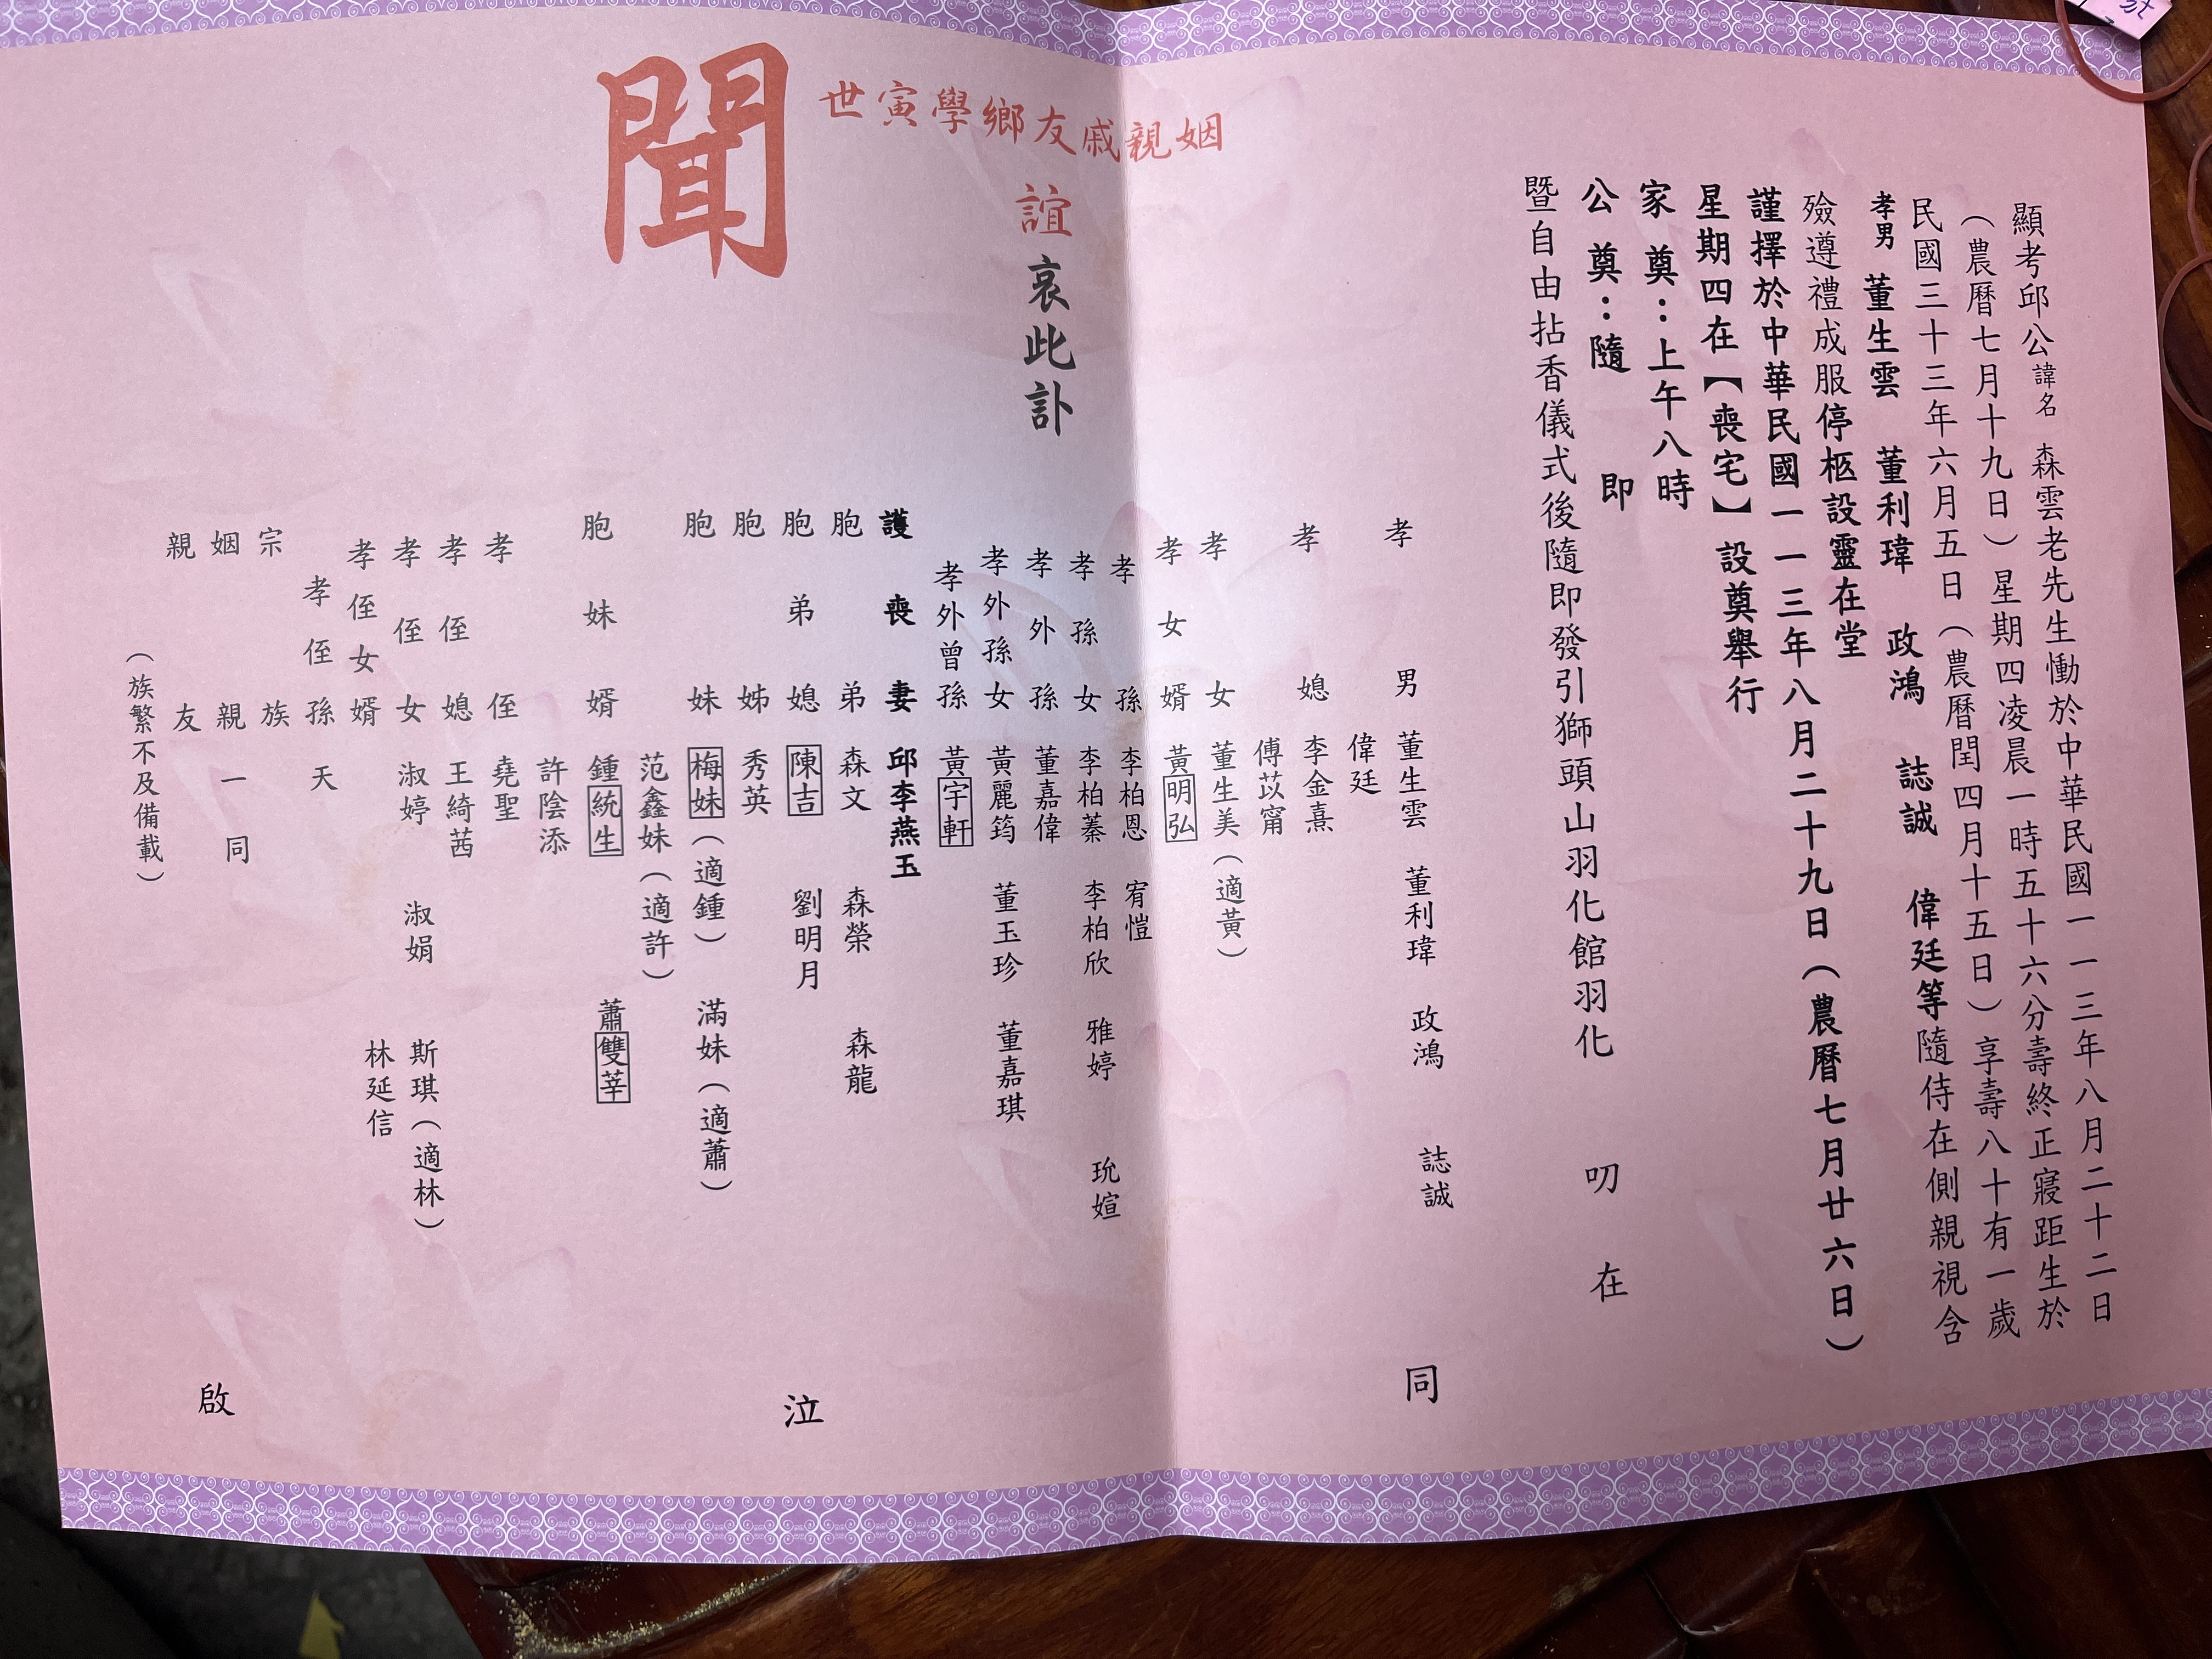 顯考邱公諱名森雲老先生慟於中華民國一一三年八月二十二日
（農曆七月十九日）星期四凌晨一時五十六分壽終正寢距生於
民國三十三年六月五日（農曆閏四月十五日）享壽八十有一歲
孝男 董生雲 董利瑋 政鴻 誌誠 偉廷等隨侍在側親視含
殮遵禮成服停柩設靈在堂
謹擇於中華民國一一三年八月二十九日（農曆七月廿六日）
星期四在【喪宅】設奠舉行
家奠：上午八時
公奠：隨 即
暨自由拈香儀式後隨即發引獅頭山羽化館羽化
叨 在
姻親戚友鄉學寅世
誼哀此訃
聞
孝男 董生雲 董利瑋 政鴻 誌誠
偉廷
孝媳 李金熹
傅苡甯
孝女 董生美（適黃）
孝女婿 黃明弘
孝孫 李柏恩 宥愷
孝孫女 李柏蓁 李柏欣 雅婷 玧媗
孝外孫 董嘉偉
孝外孫女 黃麗筠 董玉珍 董嘉琪
孝外曾孫 黃宇軒
護喪妻 邱李燕玉
胞弟 森文 森榮 森龍
胞弟媳 陳吉 劉明月
胞姊 秀英
胞妹 梅妹（適鍾） 滿妹（適蕭）
范鑫妹（適許）
胞妹婿 鍾統生 蕭雙莘
許陰添
孝侄 堯聖
孝侄媳 王綺茜
孝侄女 淑婷 淑娟 斯琪（適林）
孝侄女婿 林延信
孝侄孫 天
宗族
姻親 一同
親友
（族繁不及備載）
同 泣 啟